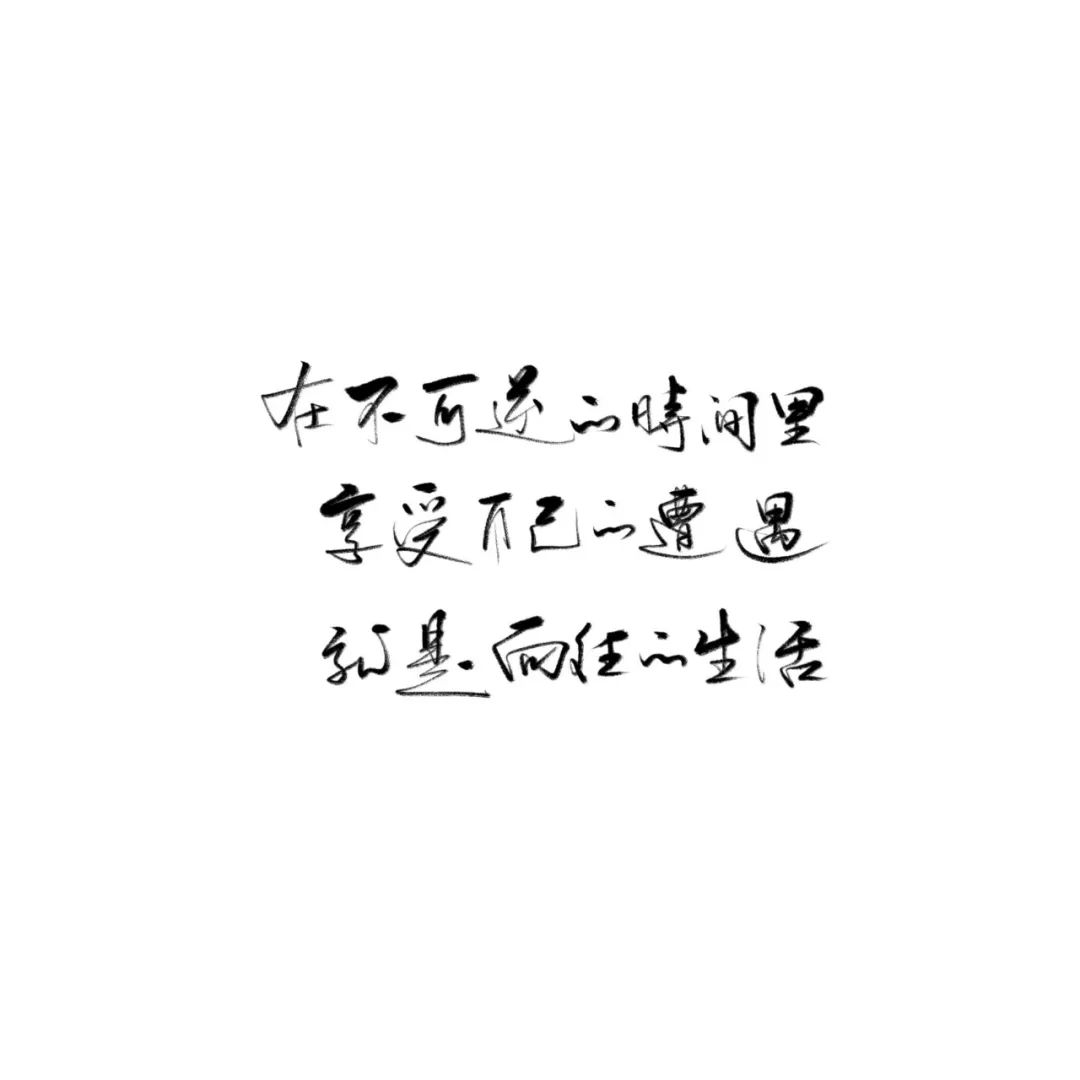 在不可逆的時间里
享受自己的遭遇
就是向往的生活